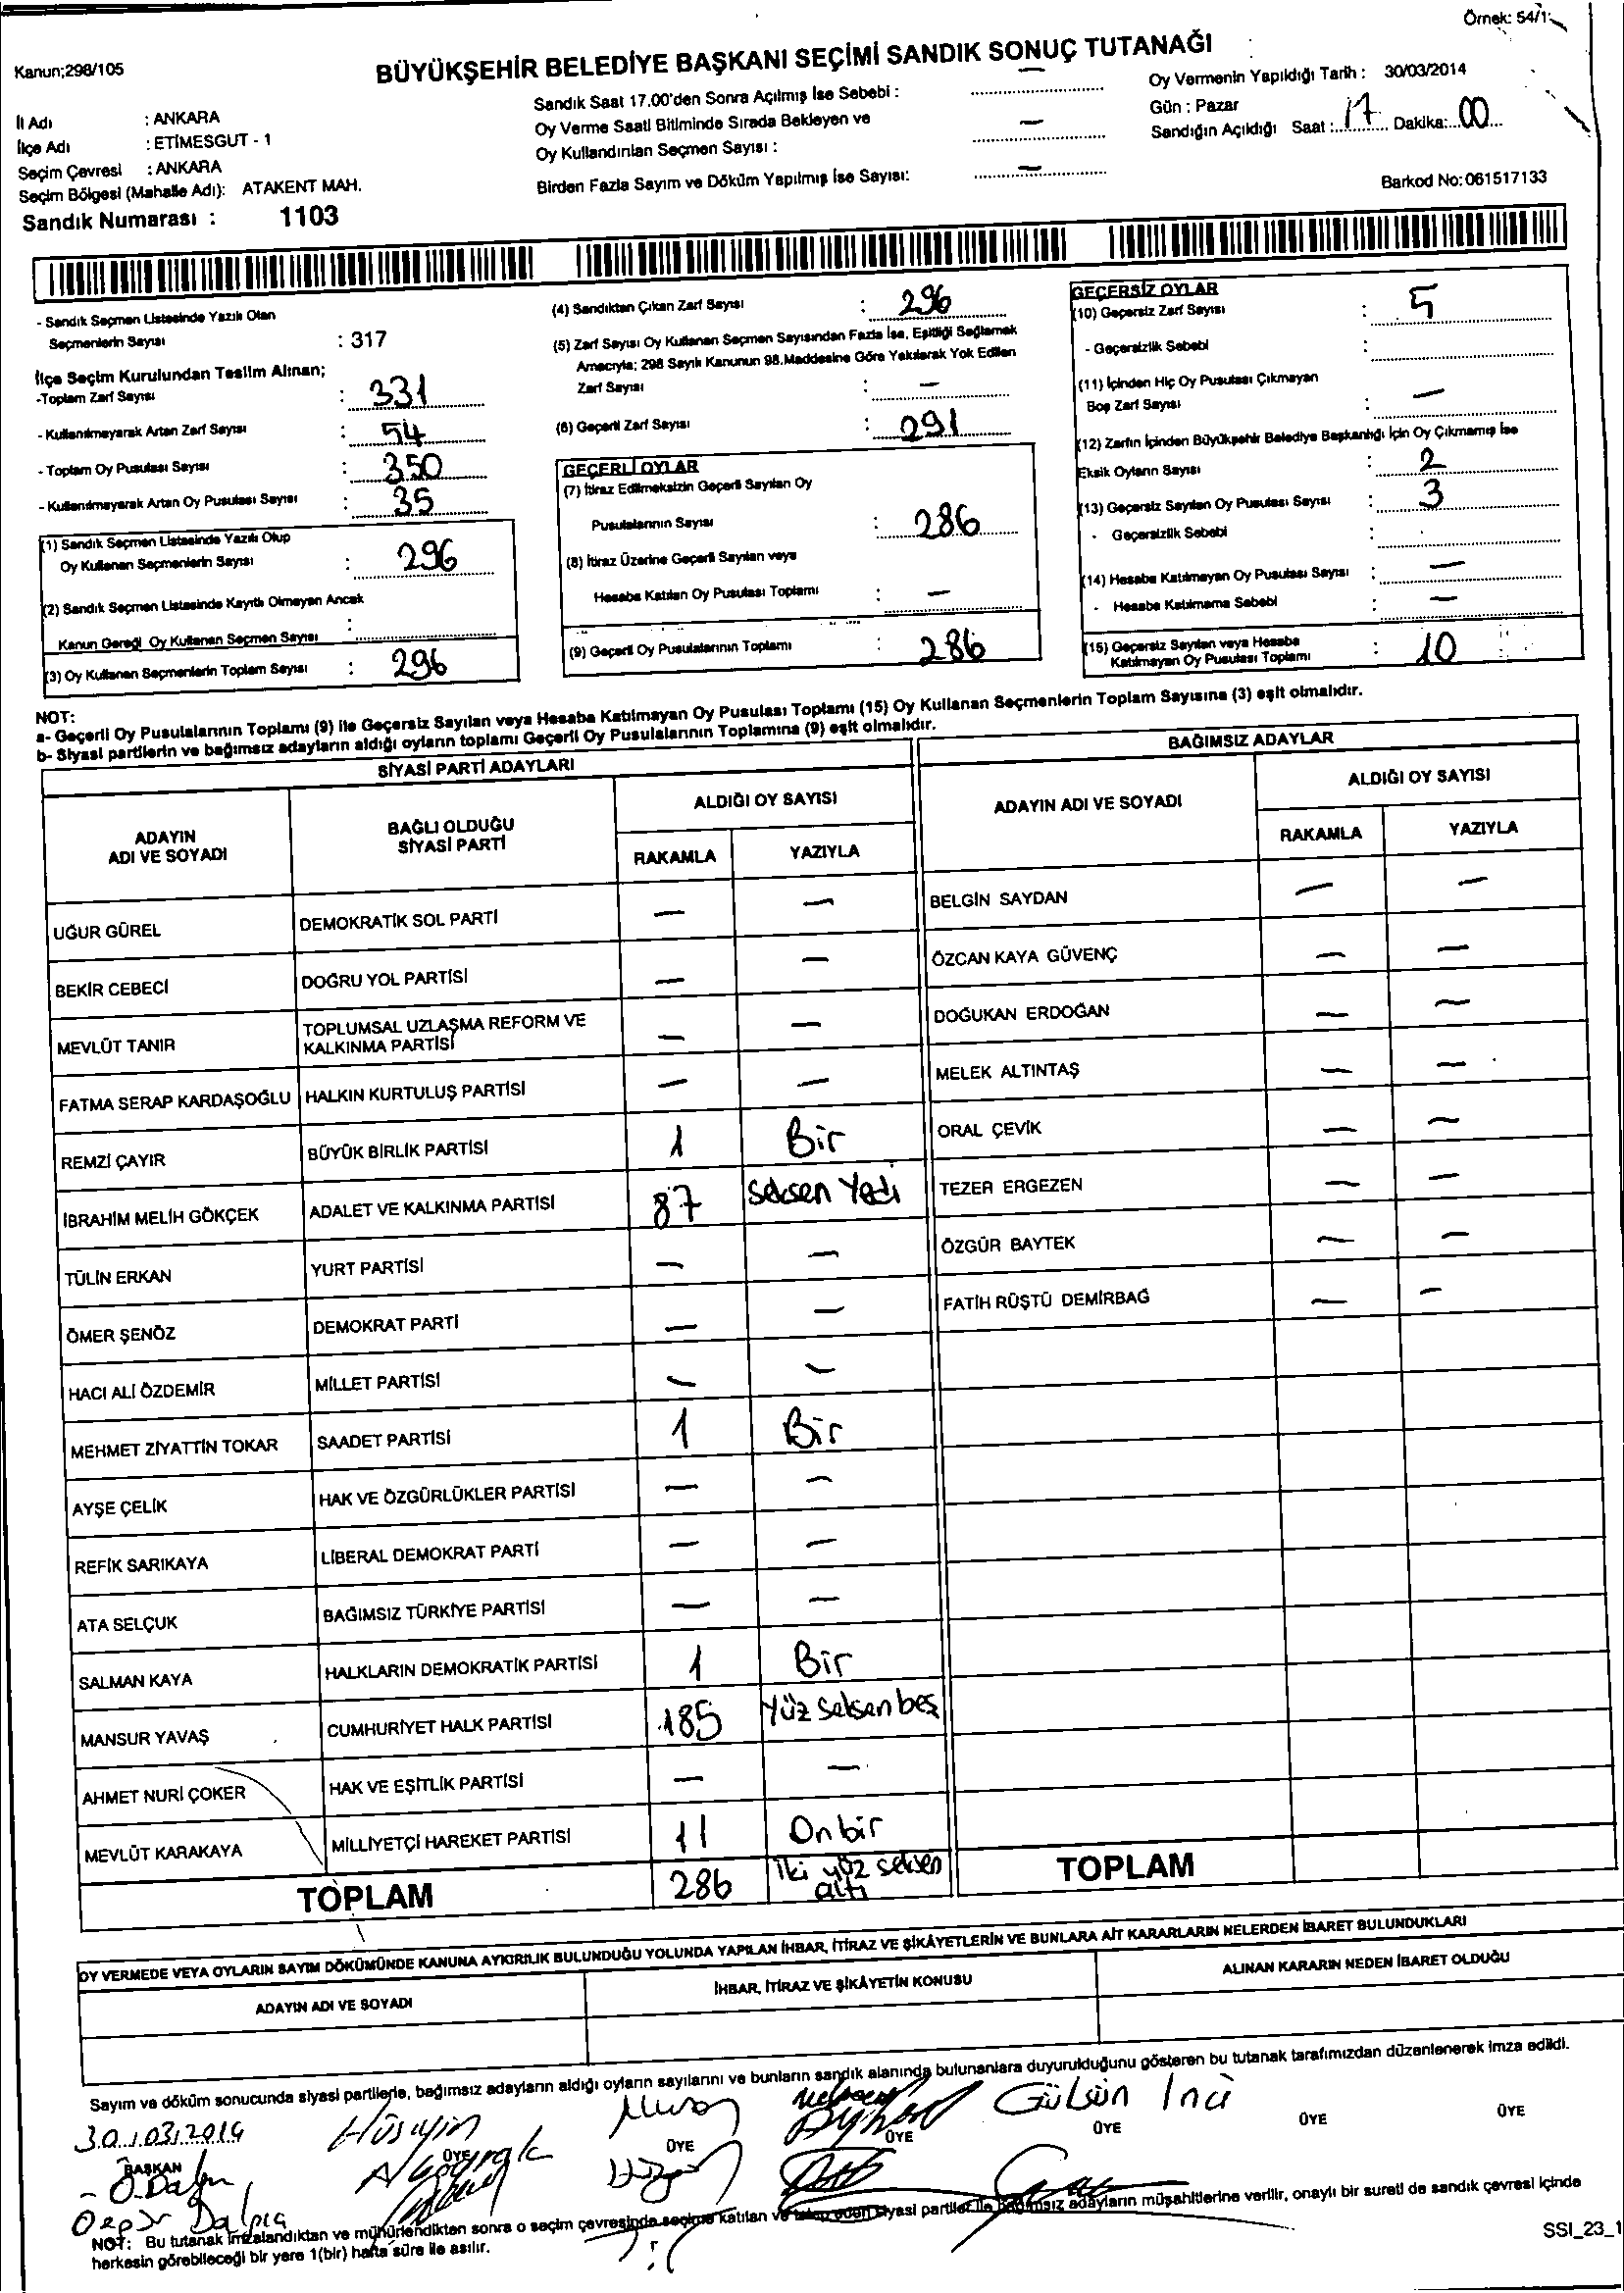 Örnek: 54/1
Kanun;298/105
BÜYÜKŞEHİR BELEDİYE BAŞKANI SEÇİMİ SANDIK SONUÇ TUTANAĞI
İl Adı : ANKARA
İlçe Adı : ETİMESGUT - 1
Seçim Çevresi : ANKARA
Seçim Bölgesi (Mahalle Adı): ATAKENT MAH.
Sandık Numarası : 1103
Sandık Saat 17.00'den Sonra Açılmış İse Sebebi : —
Oy Verme Saati Bitiminde Sırada Bekleyen ve
Oy Kullandırılan Seçmen Sayısı : —
Birden Fazla Sayım ve Döküm Yapılmış İse Sayısı: —
Oy Vermenin Yapıldığı Tarih : 30/03/2014
Gün : Pazar
Sandığın Açıldığı Saat : 17 Dakika: 00
Barkod No: 061517133
- Sandık Seçmen Listesinde Yazılı Olan
Seçmenlerin Sayısı : 317
İlçe Seçim Kurulundan Teslim Alınan;
-Toplam Zarf Sayısı : 331
- Kullanılmayarak Artan Zarf Sayısı : 54
- Toplam Oy Pusulası Sayısı : 350
- Kullanılmayarak Artan Oy Pusulası Sayısı : 35
(1) Sandık Seçmen Listesinde Yazılı Olup
Oy Kullanan Seçmenlerin Sayısı : 296
(2) Sandık Seçmen Listesinde Kayıtlı Olmayan Ancak
Kanun Gereği Oy Kullanan Seçmen Sayısı :
(3) Oy Kullanan Seçmenlerin Toplam Sayısı : 296
(4) Sandıktan Çıkan Zarf Sayısı : 296
(5) Zarf Sayısı Oy Kullanan Seçmen Sayısından Fazla İse, Eşitliği Sağlamak
Amacıyla; 298 Sayılı Kanunun 98.Maddesine Göre Yakılarak Yok Edilen
Zarf Sayısı : —
(6) Geçerli Zarf Sayısı : 291
GEÇERLİ OYLAR
(7) İtiraz Edilmeksizin Geçerli Sayılan Oy
Pusulalarının Sayısı : 286
(8) İtiraz Üzerine Geçerli Sayılan veya
Hesaba Katılan Oy Pusulası Toplamı : —
(9) Geçerli Oy Pusulalarının Toplamı : 286
GEÇERSİZ OYLAR
(10) Geçersiz Zarf Sayısı : 5
- Geçersizlik Sebebi :
(11) İçinden Hiç Oy Pusulası Çıkmayan
Boş Zarf Sayısı : —
(12) Zarfın İçinden Büyükşehir Belediye Başkanlığı İçin Oy Çıkmamış İse
Eksik Oyların Sayısı : 2
(13) Geçersiz Sayılan Oy Pusulası Sayısı : 3
- Geçersizlik Sebebi :
(14) Hesaba Katılmayan Oy Pusulası Sayısı : —
- Hesaba Katılmama Sebebi : —
(15) Geçersiz Sayılan veya Hesaba
Katılmayan Oy Pusulası Toplamı : 10
NOT:
a- Geçerli Oy Pusulalarının Toplamı (9) ile Geçersiz Sayılan veya Hesaba Katılmayan Oy Pusulası Toplamı (15) Oy Kullanan Seçmenlerin Toplam Sayısına (3) eşit olmalıdır.
b- Siyasi partilerin ve bağımsız adayların aldığı oyların toplamı Geçerli Oy Pusulalarının Toplamına (9) eşit olmalıdır.
SİYASİ PARTİ ADAYLARI
ADAYIN ADI VE SOYADI BAĞLI OLDUĞU SİYASİ PARTİ ALDIĞI OY SAYISI
RAKAMLA YAZIYLA
UĞUR GÜREL DEMOKRATİK SOL PARTİ — —
BEKİR CEBECİ DOĞRU YOL PARTİSİ — —
MEVLÜT TANIR TOPLUMSAL UZLAŞMA REFORM VE KALKINMA PARTİSİ — —
FATMA SERAP KARDAŞOĞLU HALKIN KURTULUŞ PARTİSİ — —
REMZİ ÇAYIR BÜYÜK BİRLİK PARTİSİ 1 Bir
İBRAHİM MELİH GÖKÇEK ADALET VE KALKINMA PARTİSİ 87 Seksen Yedi
TÜLİN ERKAN YURT PARTİSİ — —
ÖMER ŞENÖZ DEMOKRAT PARTİ — —
HACI ALİ ÖZDEMİR MİLLET PARTİSİ — —
MEHMET ZİYATTİN TOKAR SAADET PARTİSİ 1 Bir
AYŞE ÇELİK HAK VE ÖZGÜRLÜKLER PARTİSİ — —
REFİK SARIKAYA LİBERAL DEMOKRAT PARTİ — —
ATA SELÇUK BAĞIMSIZ TÜRKİYE PARTİSİ — —
SALMAN KAYA HALKLARIN DEMOKRATİK PARTİSİ 1 Bir
MANSUR YAVAŞ CUMHURİYET HALK PARTİSİ 185 Yüz Seksen beş
AHMET NURİ ÇOKER HAK VE EŞİTLİK PARTİSİ — —
MEVLÜT KARAKAYA MİLLİYETÇİ HAREKET PARTİSİ 11 On bir
TOPLAM 286 İki yüz seksen altı
BAĞIMSIZ ADAYLAR
ADAYIN ADI VE SOYADI ALDIĞI OY SAYISI
RAKAMLA YAZIYLA
BELGİN SAYDAN — —
ÖZCAN KAYA GÜVENÇ — —
DOĞUKAN ERDOĞAN — —
MELEK ALTINTAŞ — —
ORAL ÇEVİK — —
TEZER ERGEZEN — —
ÖZGÜR BAYTEK — —
FATİH RÜŞTÜ DEMİRBAĞ — —
TOPLAM
OY VERMEDE VEYA OYLARIN SAYIM DÖKÜMÜNDE KANUNA AYKIRILIK BULUNDUĞU YOLUNDA YAPILAN İHBAR, İTİRAZ VE ŞİKÂYETLERİN VE BUNLARA AİT KARARLARIN NELERDEN İBARET BULUNDUKLARI
ADAYIN ADI VE SOYADI İHBAR, İTİRAZ VE ŞİKÂYETİN KONUSU ALINAN KARARIN NEDEN İBARET OLDUĞU
Sayım ve döküm sonucunda siyasi partilerle, bağımsız adayların aldığı oyların sayılarını ve bunların sandık alanında bulunanlara duyurulduğunu gösteren bu tutanak tarafımızdan düzenlenerek imza edildi.
30/03/2014 Hüseyin Gülsün İnci
BAŞKAN ÜYE ÜYE ÜYE ÜYE ÜYE ÜYE
NOT: Bu tutanak imzalandıktan ve mühürlendikten sonra o seçim çevresinde seçime katılan ve talep eden siyasi partiler ile bağımsız adayların müşahitlerine verilir, onaylı bir sureti de sandık çevresi içinde
herkesin görebileceği bir yere 1(bir) hafta süre ile asılır.
SSI_23_1